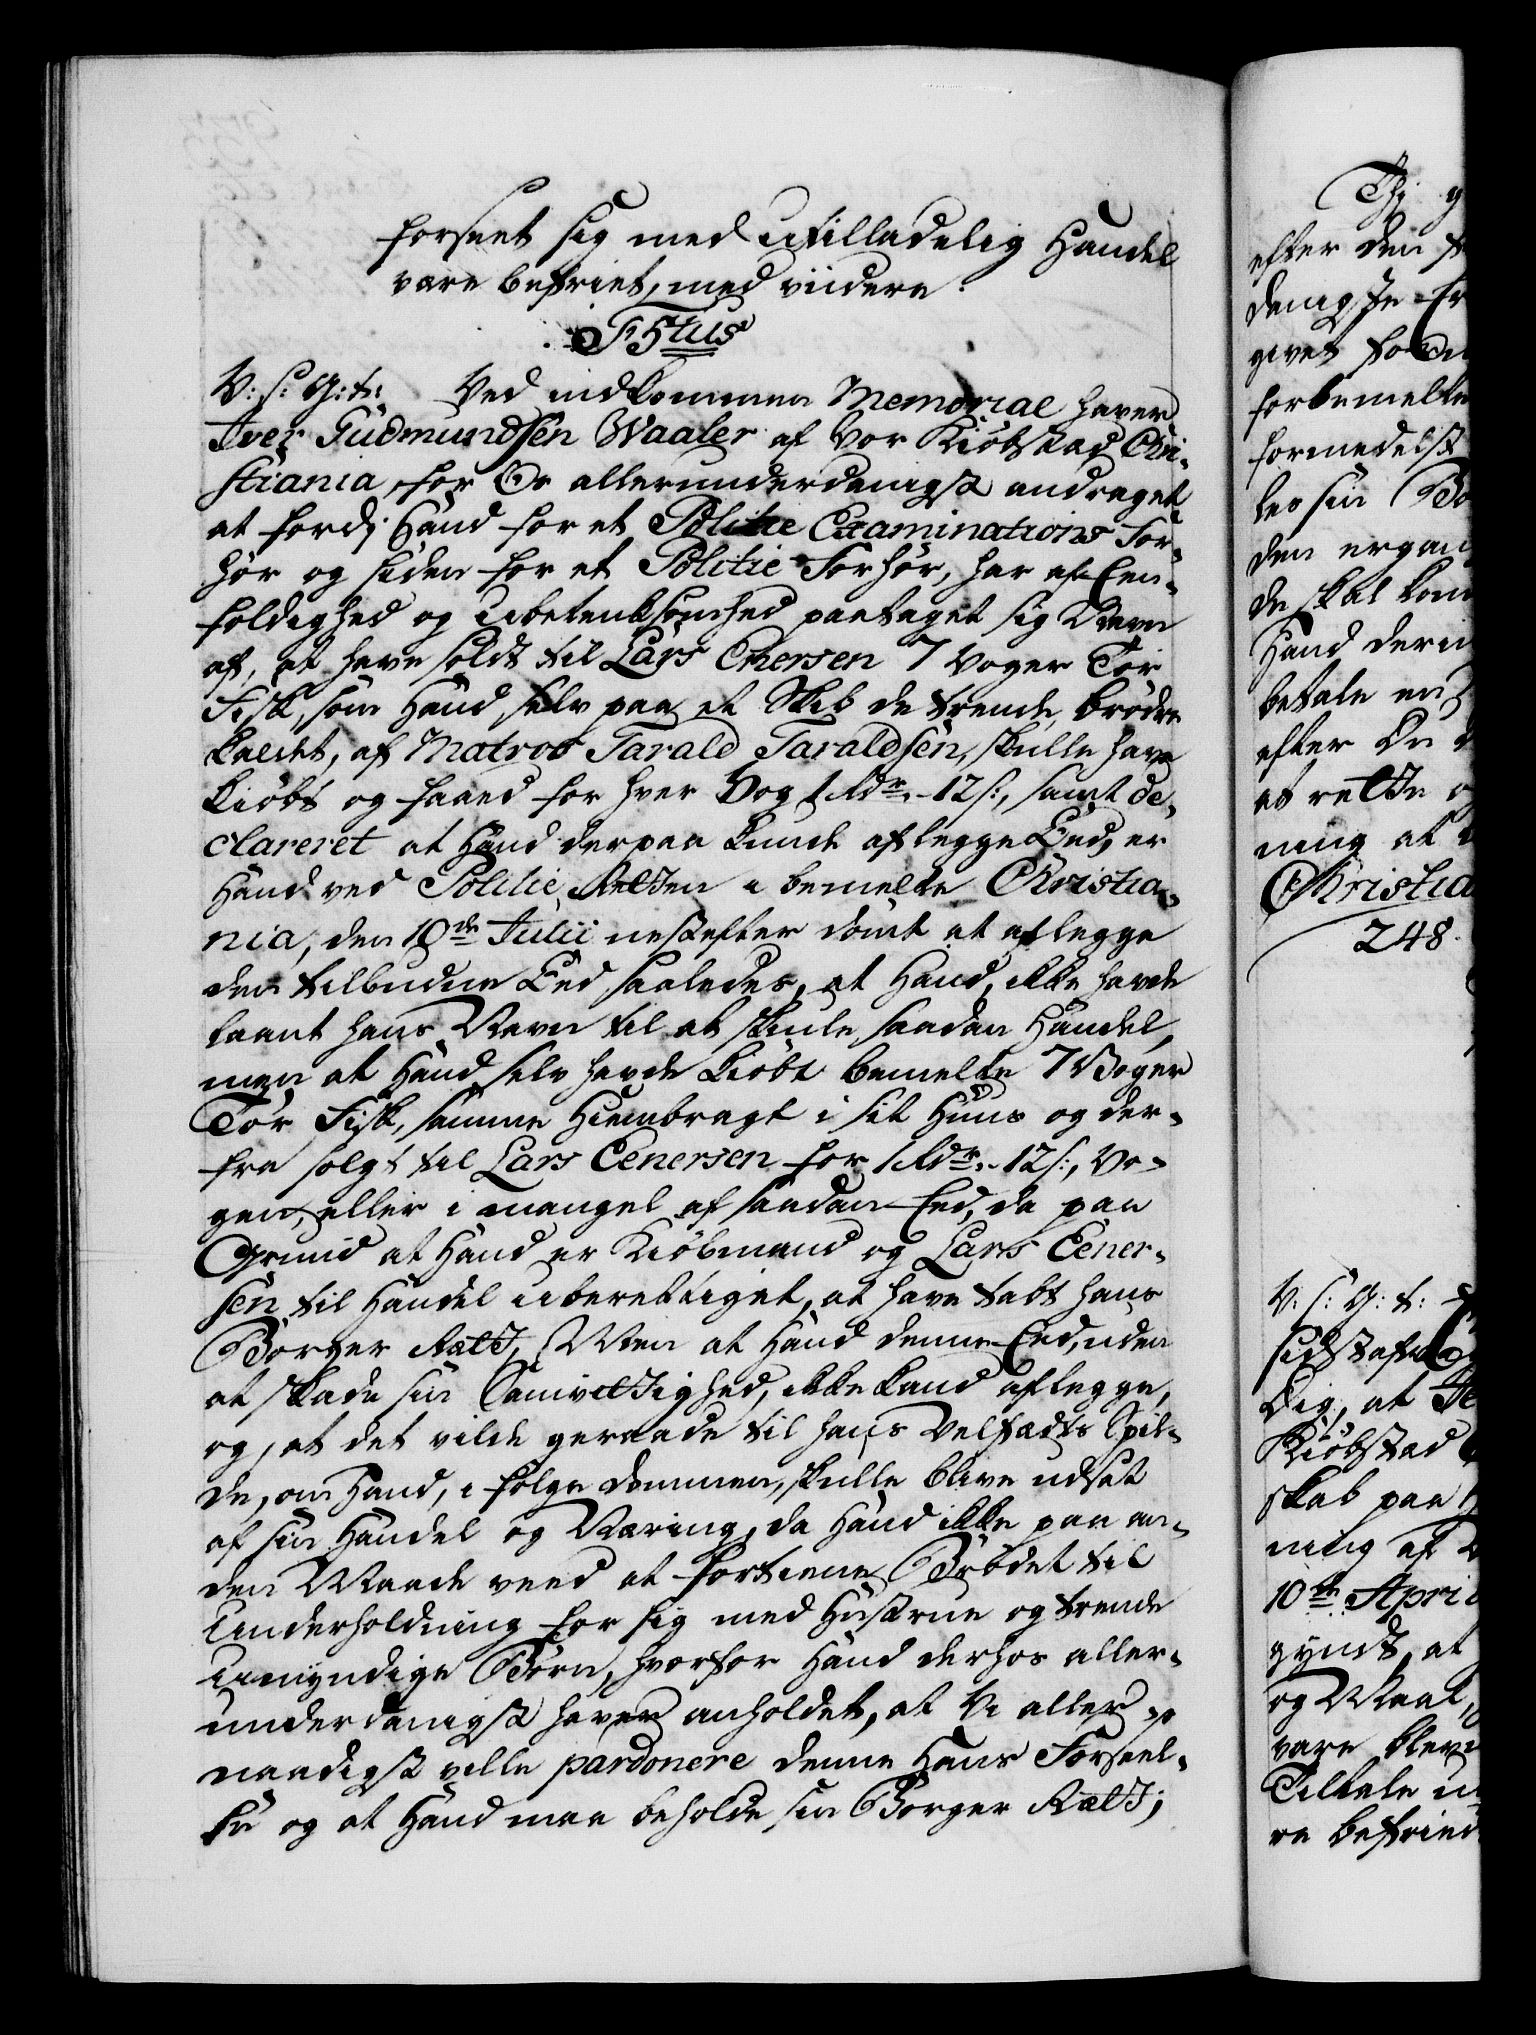 forseet sig med utilladelig Handel
være befriet, med viidere.
F 5tus
V: s: G: t: Ved indkommen Memorial haver
Iver Gudmundsen Waaler af Vor Kiöbstad Chri-
stiania, for Os allerunderdanigst andraget,
at fordj Hand for et Politie Examinations For-
hör og siden for et Politie Forhör, har af Een-
foldighed og Ubetenksomhed paataget sig Navn
af, at have soldt til Lars Enersen 7 Voger Tör
Fisk, som Hand selv paa et Skib de trende brödre
kaldet, af Matros Tarald Taraldsen, skulle have
kiöbt og faaed for hver Vog 1 Rdr. 12 s:, samt de-
clareret at Hand derpaa kunde aflegge Eed, er
Hand ved Politie Retten i bemelte Christia-
nia, den 10de Julii nestefter dömt at aflegge
den tilbudne Eed saaledes, at Hand, ikke havde
laant hans Navn til at skiule saadan Handel,
men at Hand selv havde kiöbt bemelte 7 Voger
Tör Fisk, samme Hiembragt i sit Huus og der-
fra solgt til Lars Eenersen for 1 Rdr. 12 s:, Vo-
gen, eller i mangel af saadan Eed, da paa
Grund at Hand er Kiöbmand og Lars Eener-
sen til Handel uberettiget, at have tabt hans
Borger Rett, Men at Hand denne Eed, uden
at skade sin Samvittighed, ikke kand aflegge,
og, at det vilde geraade til hans Velfærds Spil-
de, om Hand, i fölge Dommen, skulle blive udsat
af sin Handel og Næring, da Hand ikke paa an-
den Maade veed at fortiene Brödet til
Underholdning for sig med Hustrue og trende
Umyndige Börn, hvorfor Hand derhos aller-
underdanigst haver anholdet, at Vi aller-
naadigst ville pardonere denne Hans Forseel-
se og at Hand maa beholde sin Borger Rett;
Thj g
efter den
denigste
givet
forbemelte
formedelst
les sin Bo
den ergan
de, skal kom
Hand deri
betale en
efter
at rette o
ning at
Christia
248.
V: s: G: t:
sidstafv
Dig, at Je
Kiöbstad
skab paa
ning af
10de April
gyndt, at
og Maal,
være blev
Tiltale u
re befried